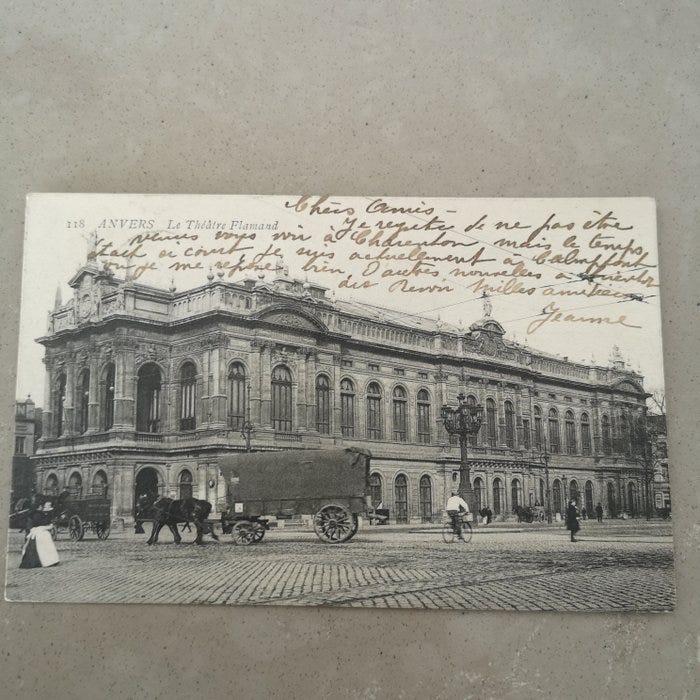 118 ANVERS Le Théâtre Flamand
Chers Amis –
Je regrette de ne pas être
venues vous voir à Charenton, mais le temps
était si court je suis actuellement à Calmpthout
je me repose bien, d'autres nouvelles
Mille amitiés
Jeanne